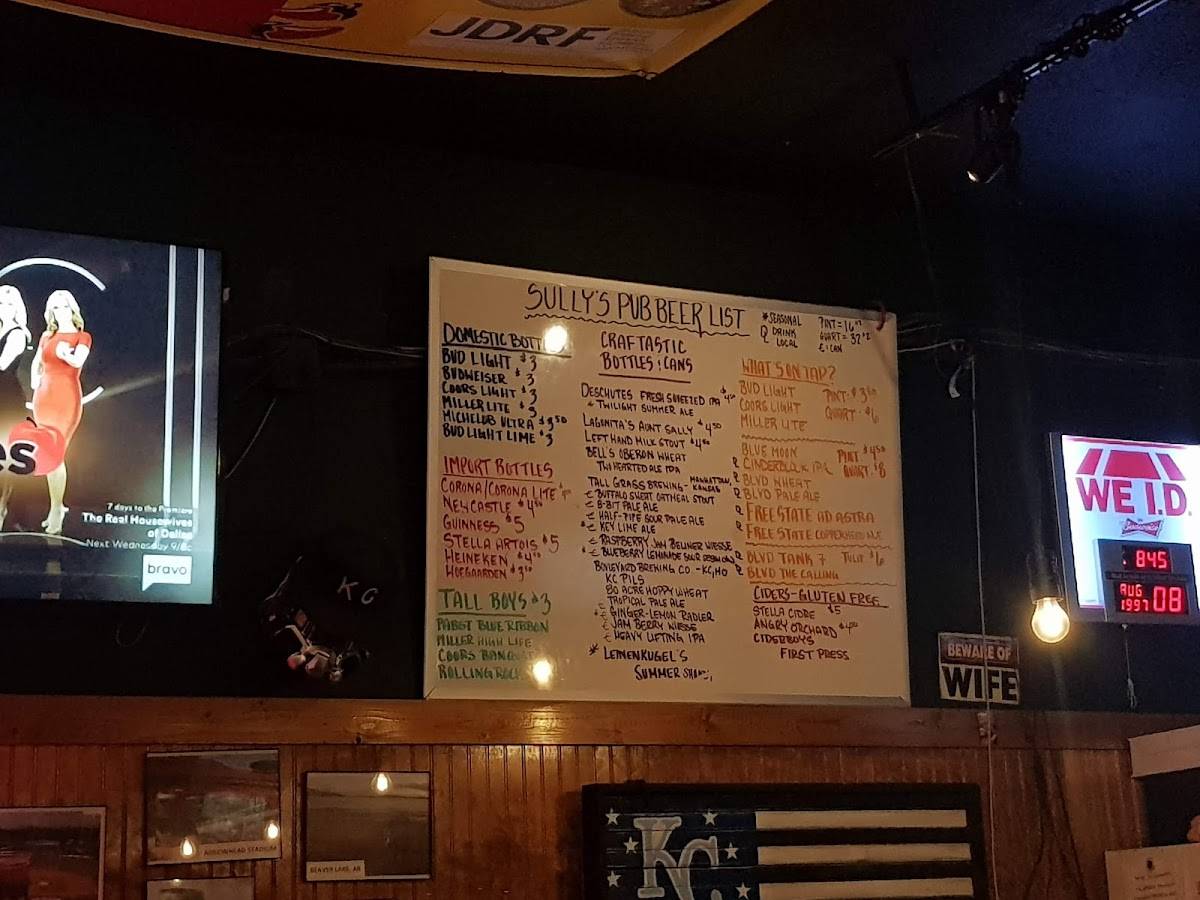 JDRF
SULLY'S PUB BEER LIST
* SEASONAL
Q DRINK LOCAL
PINT = 16 oz
QUART = 32 oz
€ : CAN
DOMESTIC BOTT
BUD LIGHT $3
BUDWEISER $3
COORS LIGHT $3
MILLER LITE $3
MICHELOB ULTRA $3.50
BUD LIGHT LIME $3
IMPORT BOTTLES
CORONA/CORONA LITE
NEWCASTLE $4
GUINNESS $5
STELLA ARTOIS $5
HEINEKEN
HOEGAARDEN
TALL BOYS $3
PABST BLUE RIBBON
MILLER HIGH LIFE
COORS BANQ
ROLLING ROC
CRAFTASTIC
BOTTLES & CANS
DESCHUTES FRESH SQUEEZED IPA $4.50
* TWILIGHT SUMMER ALE
LAGUNITA'S AUNT SALLY $4.50
LEFT HAND MILK STOUT
BELL'S OBERON WHEAT
TWO HEARTED ALE IPA
TALL GRASS BREWING - MANHATTAN, KANSAS
€ BUFFALO SWEAT OATMEAL STOUT
€ 8-BIT PALE ALE
€ HALF-PIPE SOUR PALE ALE
€ KEY LIME ALE
€ RASPBERRY JAM BERLINER WEISSE
€ BLUEBERRY LEMONADE SOUR
BOULEVARD BREWING CO. - KC, MO
KC PILS
80 ACRE HOPPY WHEAT
TROPICAL PALE ALE
€ GINGER-LEMON RADLER
€ JAM BERRY WEISSE
€ HEAVY LIFTING IPA
* LEINENKUGEL'S
SUMMER SHAN
WHAT'S ON TAP?
BUD LIGHT PINT: $3
COORS LIGHT QUART: $6
MILLER LITE
BLUE MOON PINT $4.50
Q CINDERBLOCK IPA QUART: $8
Q BLVD WHEAT
Q BLVD PALE ALE
Q FREE STATE AD ASTRA
Q FREE STATE COPPERHEAD ALE
Q BLVD TANK 7 TULIP $6
Q BLVD THE CALLING
CIDERS - GLUTEN FREE
STELLA CIDRE $5
ANGRY ORCHARD
CIDERBOYS
FIRST PRESS
es
7 days to the Premiere
The Real Housewives
of Dallas
Next Wednesday 9/8c
bravo
KC
WE I.D.
Budweiser
845
AUG
1997 08
BEWARE OF
WIFE
ARROWHEAD STADIUM
BEAVER LAKE, AR
KC